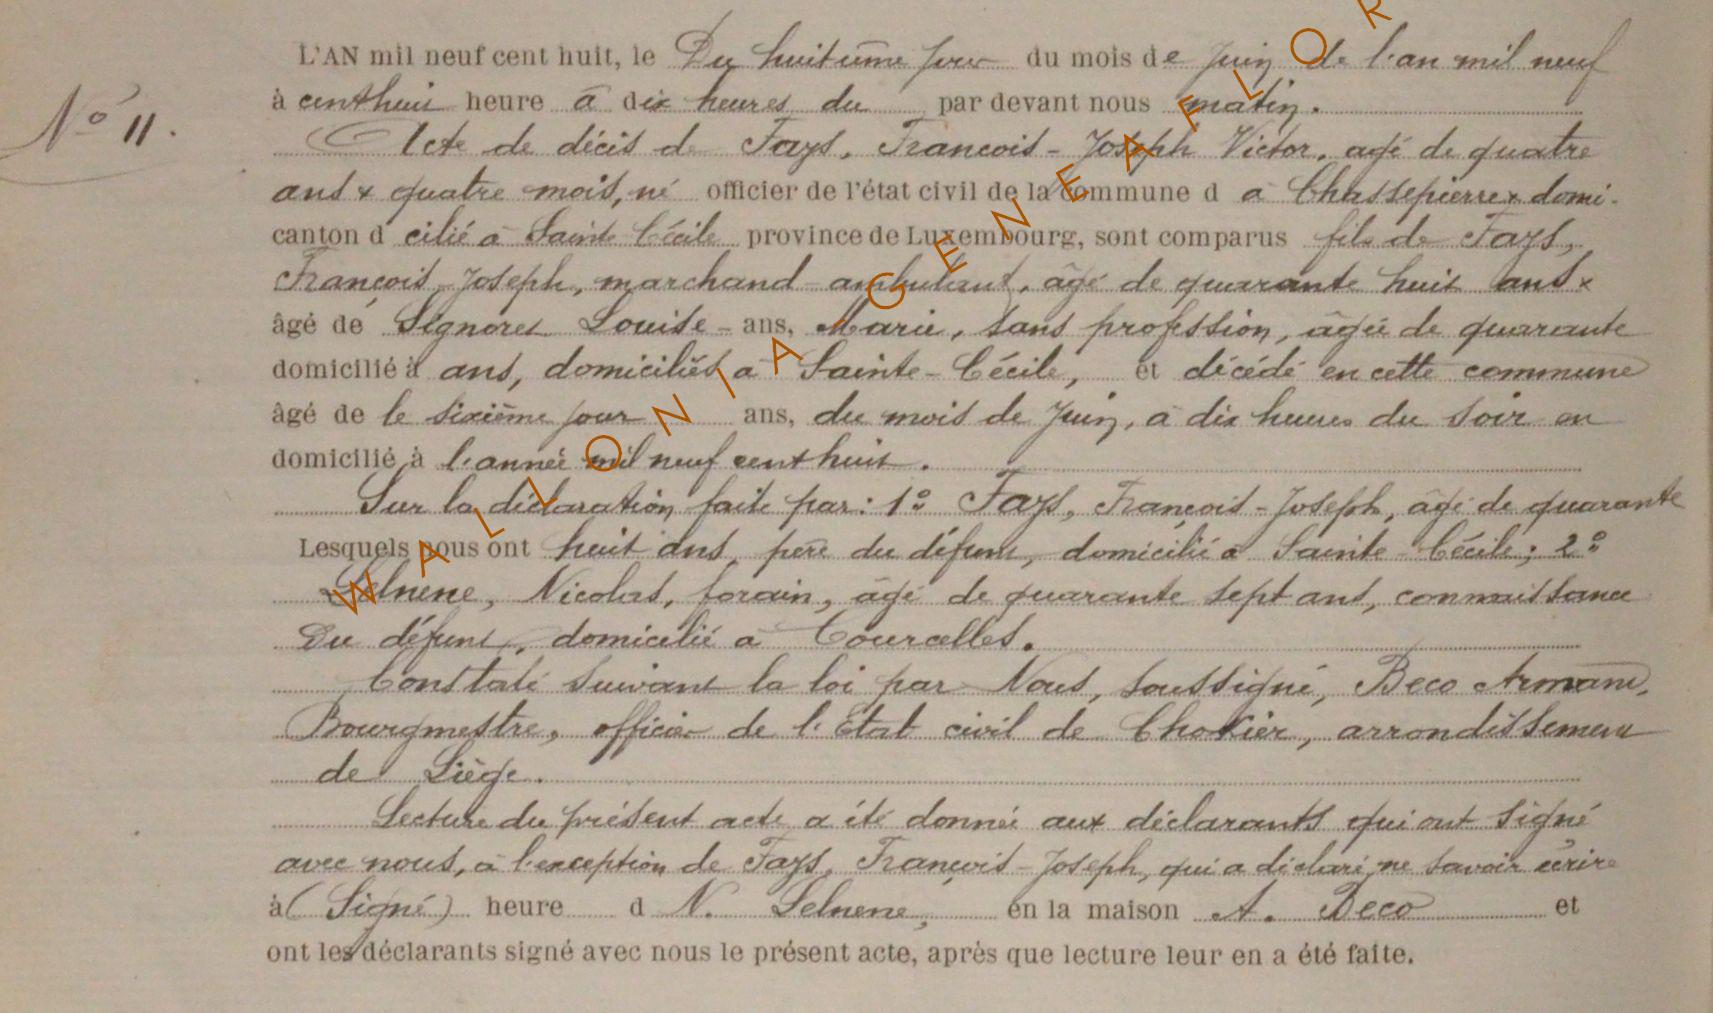 L'AN mil neuf cent huit, le Du huitième jour du mois de juin de l'an mil neuf
à cent huit heure à dix heures du par devant nous matin.
No 11.
Acte de décès de Fays, Francois-Joseph Victor, agé de quatre
ans & quatre mois, né officier de l'état civil de la commune d à Chassepierre & domi-
canton d cilié à Sainte Cécile province de Luxembourg, sont comparus fils de Fays,
François, Joseph, marchand ambulant, âgé de quarante huit ans &
âgé de Signoret Louise - ans, Marie, sans profession, âgée de quarante
domicilié à ans, domiciliés à Sainte-Cécile, et décédé en cette commune
âgé de le sixième jour ans, du mois de juin, à dix heures du soir en
domicilié à l'année mil neuf cent huit.
Sur la déclaration faite par: 1º Fays, François-Joseph, âgé de quarante
Lesquels nous ont huit ans, père du défunt, domicilié à Sainte-Cécile; 2º
Lelnene, Nicolas, forain, âgé de quarante sept ans, connaissance
Du défunt, domicilié à Courcelles.
Constaté suivant la loi par Nous, soussigné, Beco Armand,
Bourgmestre, officier de l'Etat civil de Chokier, arrondissement
de Liège.
Lecture du présent acte a été donnée aux déclarants qui ont signé
avec nous, à l'exception de Fays, François-Joseph, qui a déclaré ne savoir écrire
à (Signé) heure d N. Lelnene, en la maison A. Beco et
ont les déclarants signé avec nous le présent acte, après que lecture leur en a été faite.
WALLONIA GENEAFLOR